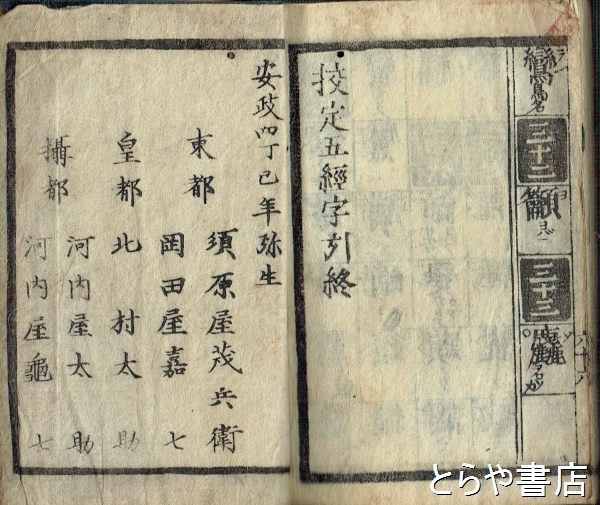 鸞 鳥名
三十二
籲 ヨブ
三十三
六十六
挍定五經字引終
安政四丁巳年弥生
東都 須原屋茂兵衛
岡田屋嘉七
皇都 北村太助
河内屋太助
攝都 河内屋龜七
とらや書店